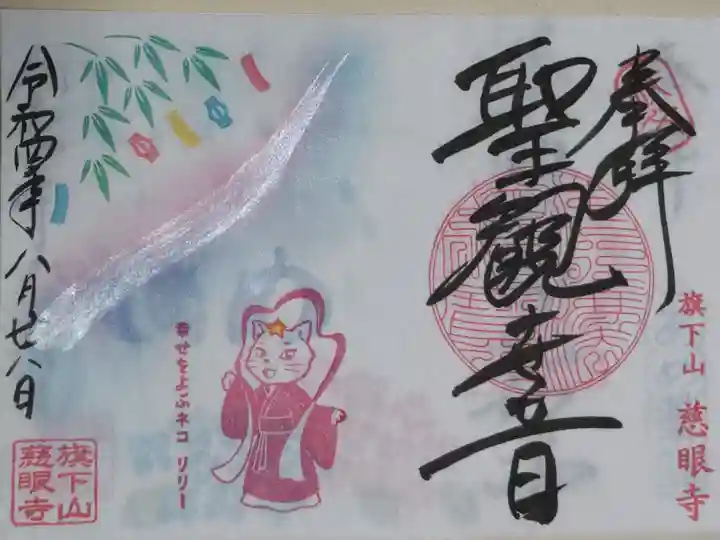 奉拝
聖観世音
旗下山 慈眼寺
幸せをよぶネコ リリー
令和四年八月廿八日
旗下山
慈眼寺